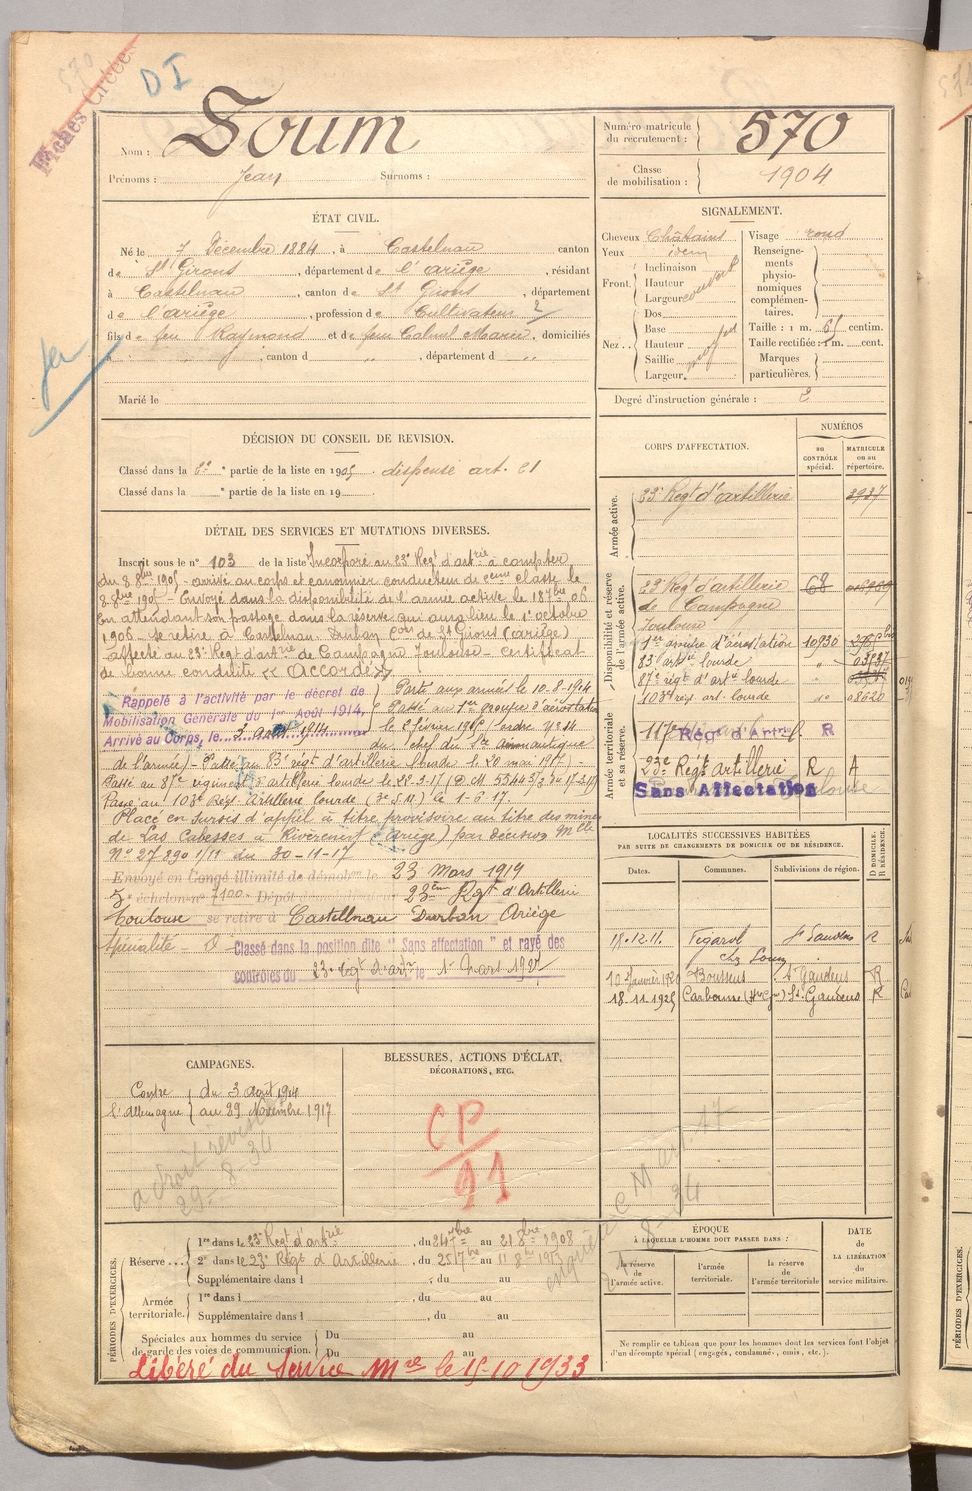 Fiches Créées
DI
Nom : Soum
Prénoms : Jean Surnoms :
Numéro matricule du recrutement : 570
Classe de mobilisation : 1904
ÉTAT CIVIL.
Né le 7 Décembre 1884, à Castelnau canton
de St Girons, département de l'ariège, résidant
à Castelnau, canton de St Girons, département
de l'ariège, profession de Cultivateur 2
fils de feu Raymond et de feue Marie, domiciliés
à " , canton d " , département d "
Marié le
SIGNALEMENT.
Cheveux Châtains
Yeux idem
Front. Inclinaison
Hauteur
Largeur
Nez Dos
Base
Hauteur
Saillie
Largeur
Visage rond
Renseignements physionomiques complémentaires.
Taille : 1 m. 65 centim.
Taille rectifiée : 1 m. cent.
Marques particulières.
Degré d'instruction générale : 2
DÉCISION DU CONSEIL DE REVISION.
Classé dans la 2e partie de la liste en 1905. dispensé art. 21
Classé dans la partie de la liste en 19
DÉTAIL DES SERVICES ET MUTATIONS DIVERSES.
Inscrit sous le n° 103 de la liste Incorporé au 23e Regt d'artrie à compter
du 8 8bre 1905 - arrivé au corps et canonnier conducteur de 2eme classe le
8 8bre 1905 - Envoyé dans la disponibilité de l'armée active le 18 7bre 06
En attendant son passage dans la réserve qui aura lieu le 1er octobre
1906 - Se retire à Castelnau Durban Con de St Girons (ariège)
affecté au 23e Regt d'artrie de Campagne Toulouse - Certificat
de bonne conduite << Accordé >>
Rappelé à l'activité par le décret de
Mobilisation Générale du 1er Août 1914.
Arrivé au Corps, le 3 août 1914
Parti aux armées le 10-8-1914
Passé au 1er groupe d'aérostation
le 2 février 1915 (ordre n° 14
du chef du Sce aéronautique
de l'armée) - Passé au 83e régt d'artillerie lourde le 20 mai 1917 -
Passé au 87e régiment d'artillerie lourde le 22-3-17
Passé au 103e Régt Artillerie lourde le 1-6-17.
Placé en sursis d'appel à titre provisoire au titre des mines
de Las Cabesses à Rivèrenert (Ariège) par décision Mlle
N° 27890 1/11 du 30-11-17
Envoyé en Congé illimité de démobon le 23 Mars 1919
3e échelon n° 7100. Dépôt démobilisateur 23em Rgt d'Artillerie
Toulouse se retire à Castelnau Durban Ariège
Spécialité - O
Classé dans la position dite "Sans affectation" et rayé des
contrôles du 23e régt d'artie le 1er Mars 1927
CORPS D'AFFECTATION.
NUMÉROS
au CONTRÔLE spécial.
MATRICULE ou au répertoire.
Armée active.
23e Regt d'artillerie 3937
Disponibilité et réserve de l'armée active.
23e Regt d'artillerie 68
de Campagne
Toulouse
1er groupe d'aérostation 10930
83e artie lourde
87e régt d'artie lourde
103e rég. art. lourde 08620
Armée territoriale et sa réserve.
117e Régt d'Artie R
23e Régt artillerie R A
Sans Affectation
LOCALITÉS SUCCESSIVES HABITÉES
PAR SUITE DE CHANGEMENTS DE DOMICILE OU DE RÉSIDENCE.
Dates. Communes. Subdivisions de région. D DOMICILE. R RÉSIDENCE.
18.12.11. Figarol St Gaudens R
chez Soum
10 Janvier 1920 Boussens St Gaudens R
18.11.1925 Carbonne (Hte G) St Gaudens R
CAMPAGNES.
Contre l'allemagne du 3 août 1914
au 29 Novembre 1917
BLESSURES, ACTIONS D'ÉCLAT,
DÉCORATIONS, ETC.
CP
91
PÉRIODES D'EXERCICES.
Réserve 1re dans le 23e Regt d'artrie, du 24 7bre au 21 8bre 1908
2e dans le 23e Régt d'Artillerie, du 25 7bre au 11 8bre 1913
Supplémentaire dans l , du au
Armée territoriale. 1re dans l , du au
Supplémentaire dans l , du au
Spéciales aux hommes du service de garde des voies de communication. Du au
Du au
Libéré du Service Mre le 15-10-1933
ÉPOQUE
À LAQUELLE L'HOMME DOIT PASSER DANS :
la réserve de l'armée active.
l'armée territoriale.
la réserve de l'armée territoriale
DATE de LA LIBÉRATION du service militaire.
Ne remplir ce tableau que pour les hommes dont les services font l'objet
d'un décompte spécial (engagés, condamnés, omis, etc.).